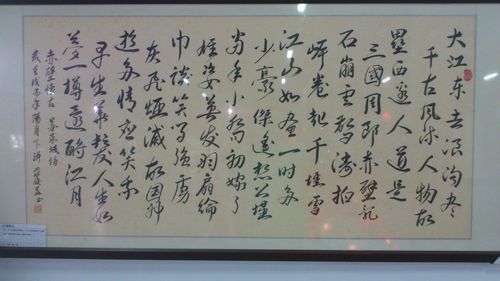 大江东去浪淘尽
千古风流人物故
垒西边人道是
三國周郎赤壁乱
石崩雲惊涛拍
岸卷起千堆雪
江山如画一时多
少豪傑遥想公瑾
当年小乔初嫁了
雄姿英发羽扇纶
巾谈笑间强虏
灰飞烟灭故国神
遊多情应笑我
早生华髮人生如
梦一樽还酹江月
赤壁怀古 苏东坡诗